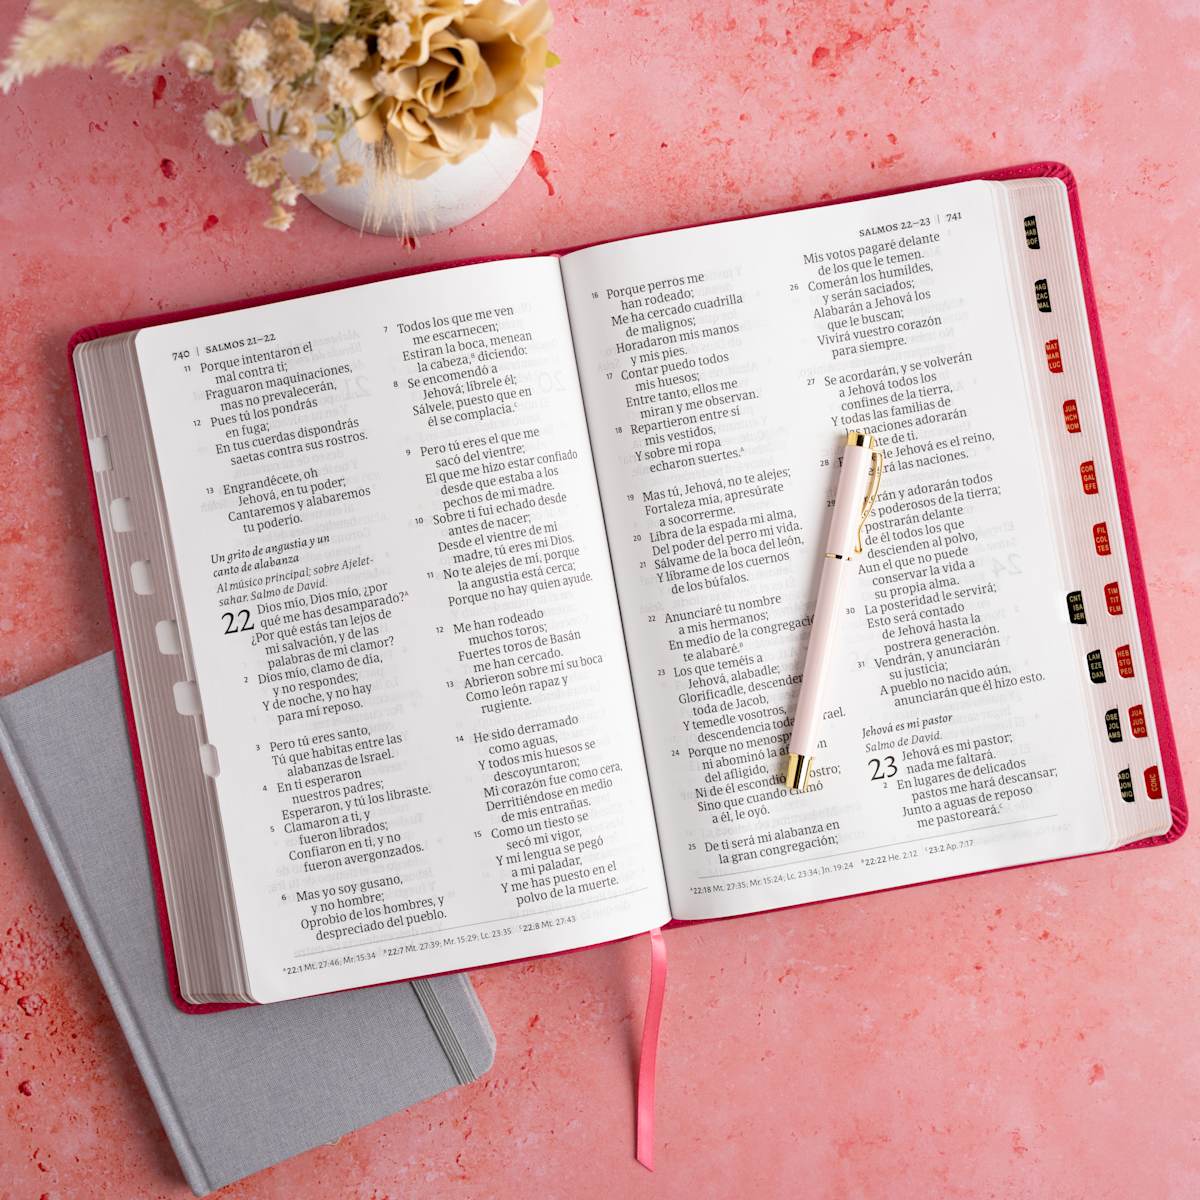 740 | SALMOS 21–22
11 Porque intentaron el
mal contra ti;
Fraguaron maquinaciones,
mas no prevalecerán,
12 Pues tú los pondrás
en fuga;
En tus cuerdas dispondrás
saetas contra sus rostros.
13 Engrandécete, oh
Jehová, en tu poder;
Cantaremos y alabaremos
tu poderío.
Un grito de angustia y un
canto de alabanza
Al músico principal; sobre Ajelet-
sahar. Salmo de David.
22 Dios mío, Dios mío, ¿por
qué me has desamparado?ᴬ
¿Por qué estás tan lejos de
mi salvación, y de las
palabras de mi clamor?
2 Dios mío, clamo de día,
y no respondes;
Y de noche, y no hay
para mí reposo.
3 Pero tú eres santo,
Tú que habitas entre las
alabanzas de Israel.
4 En ti esperaron
nuestros padres;
Esperaron, y tú los libraste.
5 Clamaron a ti, y
fueron librados;
Confiaron en ti, y no
fueron avergonzados.
6 Mas yo soy gusano,
y no hombre;
Oprobio de los hombres, y
despreciado del pueblo.
7 Todos los que me ven
me escarnecen;
Estiran la boca, menean
la cabeza,ᴮ diciendo:
8 Se encomendó a
Jehová; líbrele él;
Sálvele, puesto que en
él se complacía.ᶜ
9 Pero tú eres el que me
sacó del vientre;
El que me hizo estar confiado
desde que estaba a los
pechos de mi madre.
10 Sobre ti fui echado desde
antes de nacer;
Desde el vientre de mi
madre, tú eres mi Dios.
11 No te alejes de mí, porque
la angustia está cerca;
Porque no hay quien ayude.
12 Me han rodeado
muchos toros;
Fuertes toros de Basán
me han cercado.
13 Abrieron sobre mí su boca
Como león rapaz y
rugiente.
14 He sido derramado
como aguas,
Y todos mis huesos se
descoyuntaron;
Mi corazón fue como cera,
Derritiéndose en medio
de mis entrañas.
15 Como un tiesto se
secó mi vigor,
Y mi lengua se pegó
a mi paladar,
Y me has puesto en el
polvo de la muerte.
ᴬ22:1 Mt. 27:46; Mr. 15:34 ᴮ22:7 Mt. 27:39; Mr. 15:29; Lc. 23:35 ᶜ22:8 Mt. 27:43
SALMOS 22–23 | 741
16 Porque perros me
han rodeado;
Me ha cercado cuadrilla
de malignos;
Horadaron mis manos
y mis pies.
17 Contar puedo todos
mis huesos;
Entre tanto, ellos me
miran y me observan.
18 Repartieron entre sí
mis vestidos,
Y sobre mi ropa
echaron suertes.ᴬ
19 Mas tú, Jehová, no te alejes;
Fortaleza mía, apresúrate
a socorrerme.
20 Libra de la espada mi alma,
Del poder del perro mi vida.
21 Sálvame de la boca del león,
Y líbrame de los cuernos
de los búfalos.
22 Anunciaré tu nombre
a mis hermanos;
En medio de la congregació
te alabaré.ᴮ
23 Los que teméis a
Jehová, alabadle;
Glorificadle, descenden
toda de Jacob,
Y temedle vosotros,
descendencia toda rael.
24 Porque no menosp
ni abominó la a ón
del afligido,
Ni de él escondió ostro;
Sino que cuando clamó
a él, le oyó.
25 De ti será mi alabanza en
la gran congregación;
Mis votos pagaré delante
de los que le temen.
26 Comerán los humildes,
y serán saciados;
Alabarán a Jehová los
que le buscan;
Vivirá vuestro corazón
para siempre.
27 Se acordarán, y se volverán
a Jehová todos los
confines de la tierra,
Y todas las familias de
las naciones adorarán
te de ti.
28 de Jehová es el reino,
rá las naciones.
29 rán y adorarán todos
s poderosos de la tierra;
postrarán delante
de él todos los que
descienden al polvo,
Aun el que no puede
conservar la vida a
su propia alma.
30 La posteridad le servirá;
Esto será contado
de Jehová hasta la
postrera generación.
31 Vendrán, y anunciarán
su justicia;
A pueblo no nacido aún,
anunciarán que él hizo esto.
Jehová es mi pastor
Salmo de David.
23 Jehová es mi pastor;
nada me faltará.
2 En lugares de delicados
pastos me hará descansar;
Junto a aguas de reposo
me pastoreará.ᶜ
ᴬ22:18 Mt. 27:35; Mr. 15:24; Lc. 23:34; Jn. 19:24 ᴮ22:22 He. 2:12 ᶜ23:2 Ap. 7:17
NAH
HAB
SOF
HAG
ZAC
MAL
MAT
MAR
LUC
JUA
HCH
ROM
COR
GAL
EFE
FIL
COL
TES
CNT
ISA
JER
TIM
TIT
FLM
LAM
EZE
DAN
HEB
STG
PED
OSE
JOL
AMS
JUA
JUD
APO
ABD
JON
MIQ
CONC